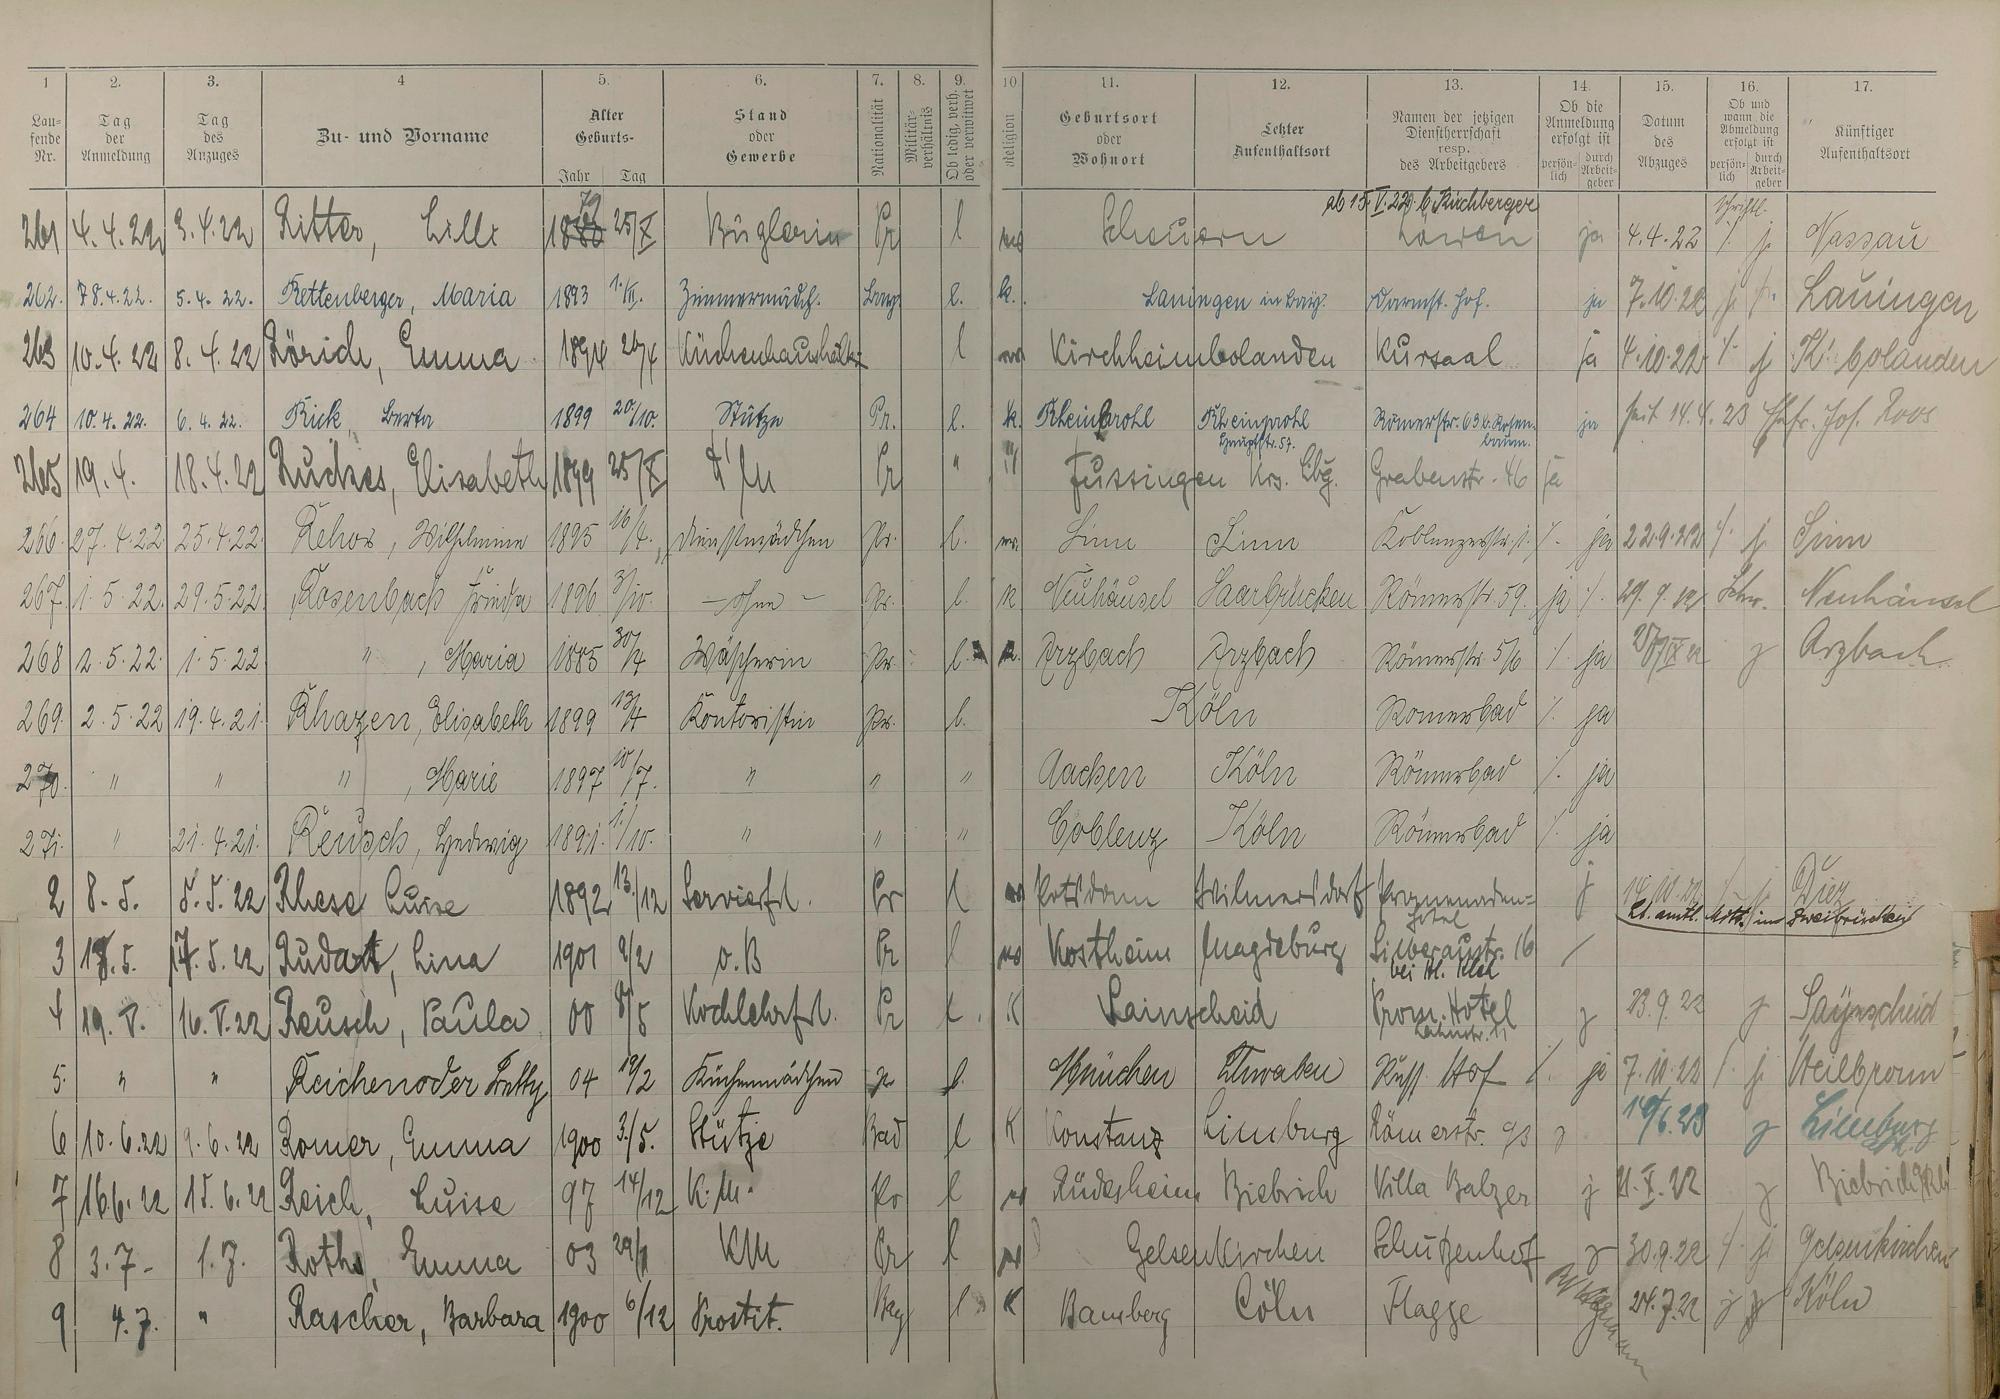 1 2. 3. 4 5. 6. 7. 8. 9. 10 11. 12. 13. 14. 15. 16. 17.
Lau-fende Nr. Tag der Anmeldung Tag des Anzuges Zu- und Vorname Alter Geburts- Jahr Tag Stand oder Gewerbe Nationalität Militär-verhältnis Ob ledig, verh. oder verwitwet Religion Geburtsort oder Wohnort Letzter Aufenthaltsort Namen der jetzigen Dienstherrschaft resp. des Arbeitgebers Ob die Anmeldung erfolgt ist persön-lich durch Arbeit-geber Datum des Abzuges Ob und wann die Abmeldung erfolgt ist persön-lich durch Arbeit-geber Künftiger Aufenthaltsort
ab 15. V. 22 b. Kirchberger
261 4.4.22 3.4.22 Ritter, Lilli 25/X Büglerin Pr l Scheuern Löwen ja 4.4.22 schriftl. j Nassau
262. 8.4.22. 5.4.22. Rettenberger, Maria 1893 Zimmermädch. Bay. l. k. Lauingen in Bay. Darmst. Hof. ja 7.10.22 j Lauingen
263 10.4.22 8.4.22 Zörich, Emma 1894 Küchenhaushält. l Kirchheimbolanden Kursaal ja 4.10.22 j K. bolanden
264 10.4.22. 6.4.22. Rick, Berta 1899 20/10. Stütze Pr. l. k. Rheinbrohl Rheinbrohl Hauptstr. 57. Römerstr. 63 b. Rosen-baum. ja seit 14.4.23 Ehefr. Jos. Roos
265 19.4. 18.4.22 Ruckes, Elisabeth 1899 25/X Pr " " Fussingen Krs. Lbg. Grabenstr. 46 ja
266. 27.4.22 25.4.22. Rehor, Wilhelmine 1895 16/4. Dienstmädchen Pr. l. Sinn Sinn Koblenzerstr. 1. ja 22.9.22 j Sinn
267. 1.5.22. 29.5.22. Rosenbach Frieda 1896 3/10. – ohne – Pr. l. k Neuhäusel Saarbrücken Römerstr. 59. ja 29.9.22 Schr. Neuhäusel
268 2.5.22. 1.5.22 " , Maria 1885 30/4 Wäscherin Pr. l. k. Arzbach Arzbach Römerstr. 5/6 ja j Arzbach
269. 2.5.22 19.4.21. Rhazen, Elisabeth 1899 13/4 Kontoristin Pr. l. Köln Römerbad ja
270. " " " , Marie 1897 10/7. " " " Aachen Köln Römerbad ja
271. " 21.4.21. Reusch, Hedwig 1891. 1/10. " " " Coblenz Köln Römerbad ja
2 8.5. 5.5.22 Rhese Luise 1892 13./12 Servierfrl. Pr l Potsdam Wilmersdorf Promenaden-Hotel j j Diez
Lt. amtl. Mitt. im Zweibrücken
3 18.5. 17.5.22 Rudart, Lina 1901 2/2 o.B Pr l Kostheim Magdeburg Silberaustr. 16
4 19.V. 16.V.22 Reusch, Paula 00 8/5 Kochlehrfrl. Pr l. K Sainscheid Prom. Hotel j 23.9.22 j Saynscheid
5. " " Reichenoder Betty 04 19/2 Küchenmädchen Pr l. München Russ. Hof ja 7.11.22 j Heilbronn
6 10.6.22 9.6.22 Romer, Emma 1900 3./5. Stütze Bad l K Konstanz Limburg Römerstr. 93 j 14/6.23 j Limburg
7 16.6.22 15.6.22 Reich, Luise 97 14/12 K.M. l Rüdesheim Biebrich Villa Balzer j 21.X.22 j Biebrich
8 3.7- 1.7. Roth, Emma 03 KM Pr l Gelsenkirchen Schützenhof j 30.9.22 j Gelsenkirchen
9 4.7. " Rascher, Barbara 1900 6/12 Prostit. Bay l K Bamberg Cöln Flagge 24.7.22 j Köln